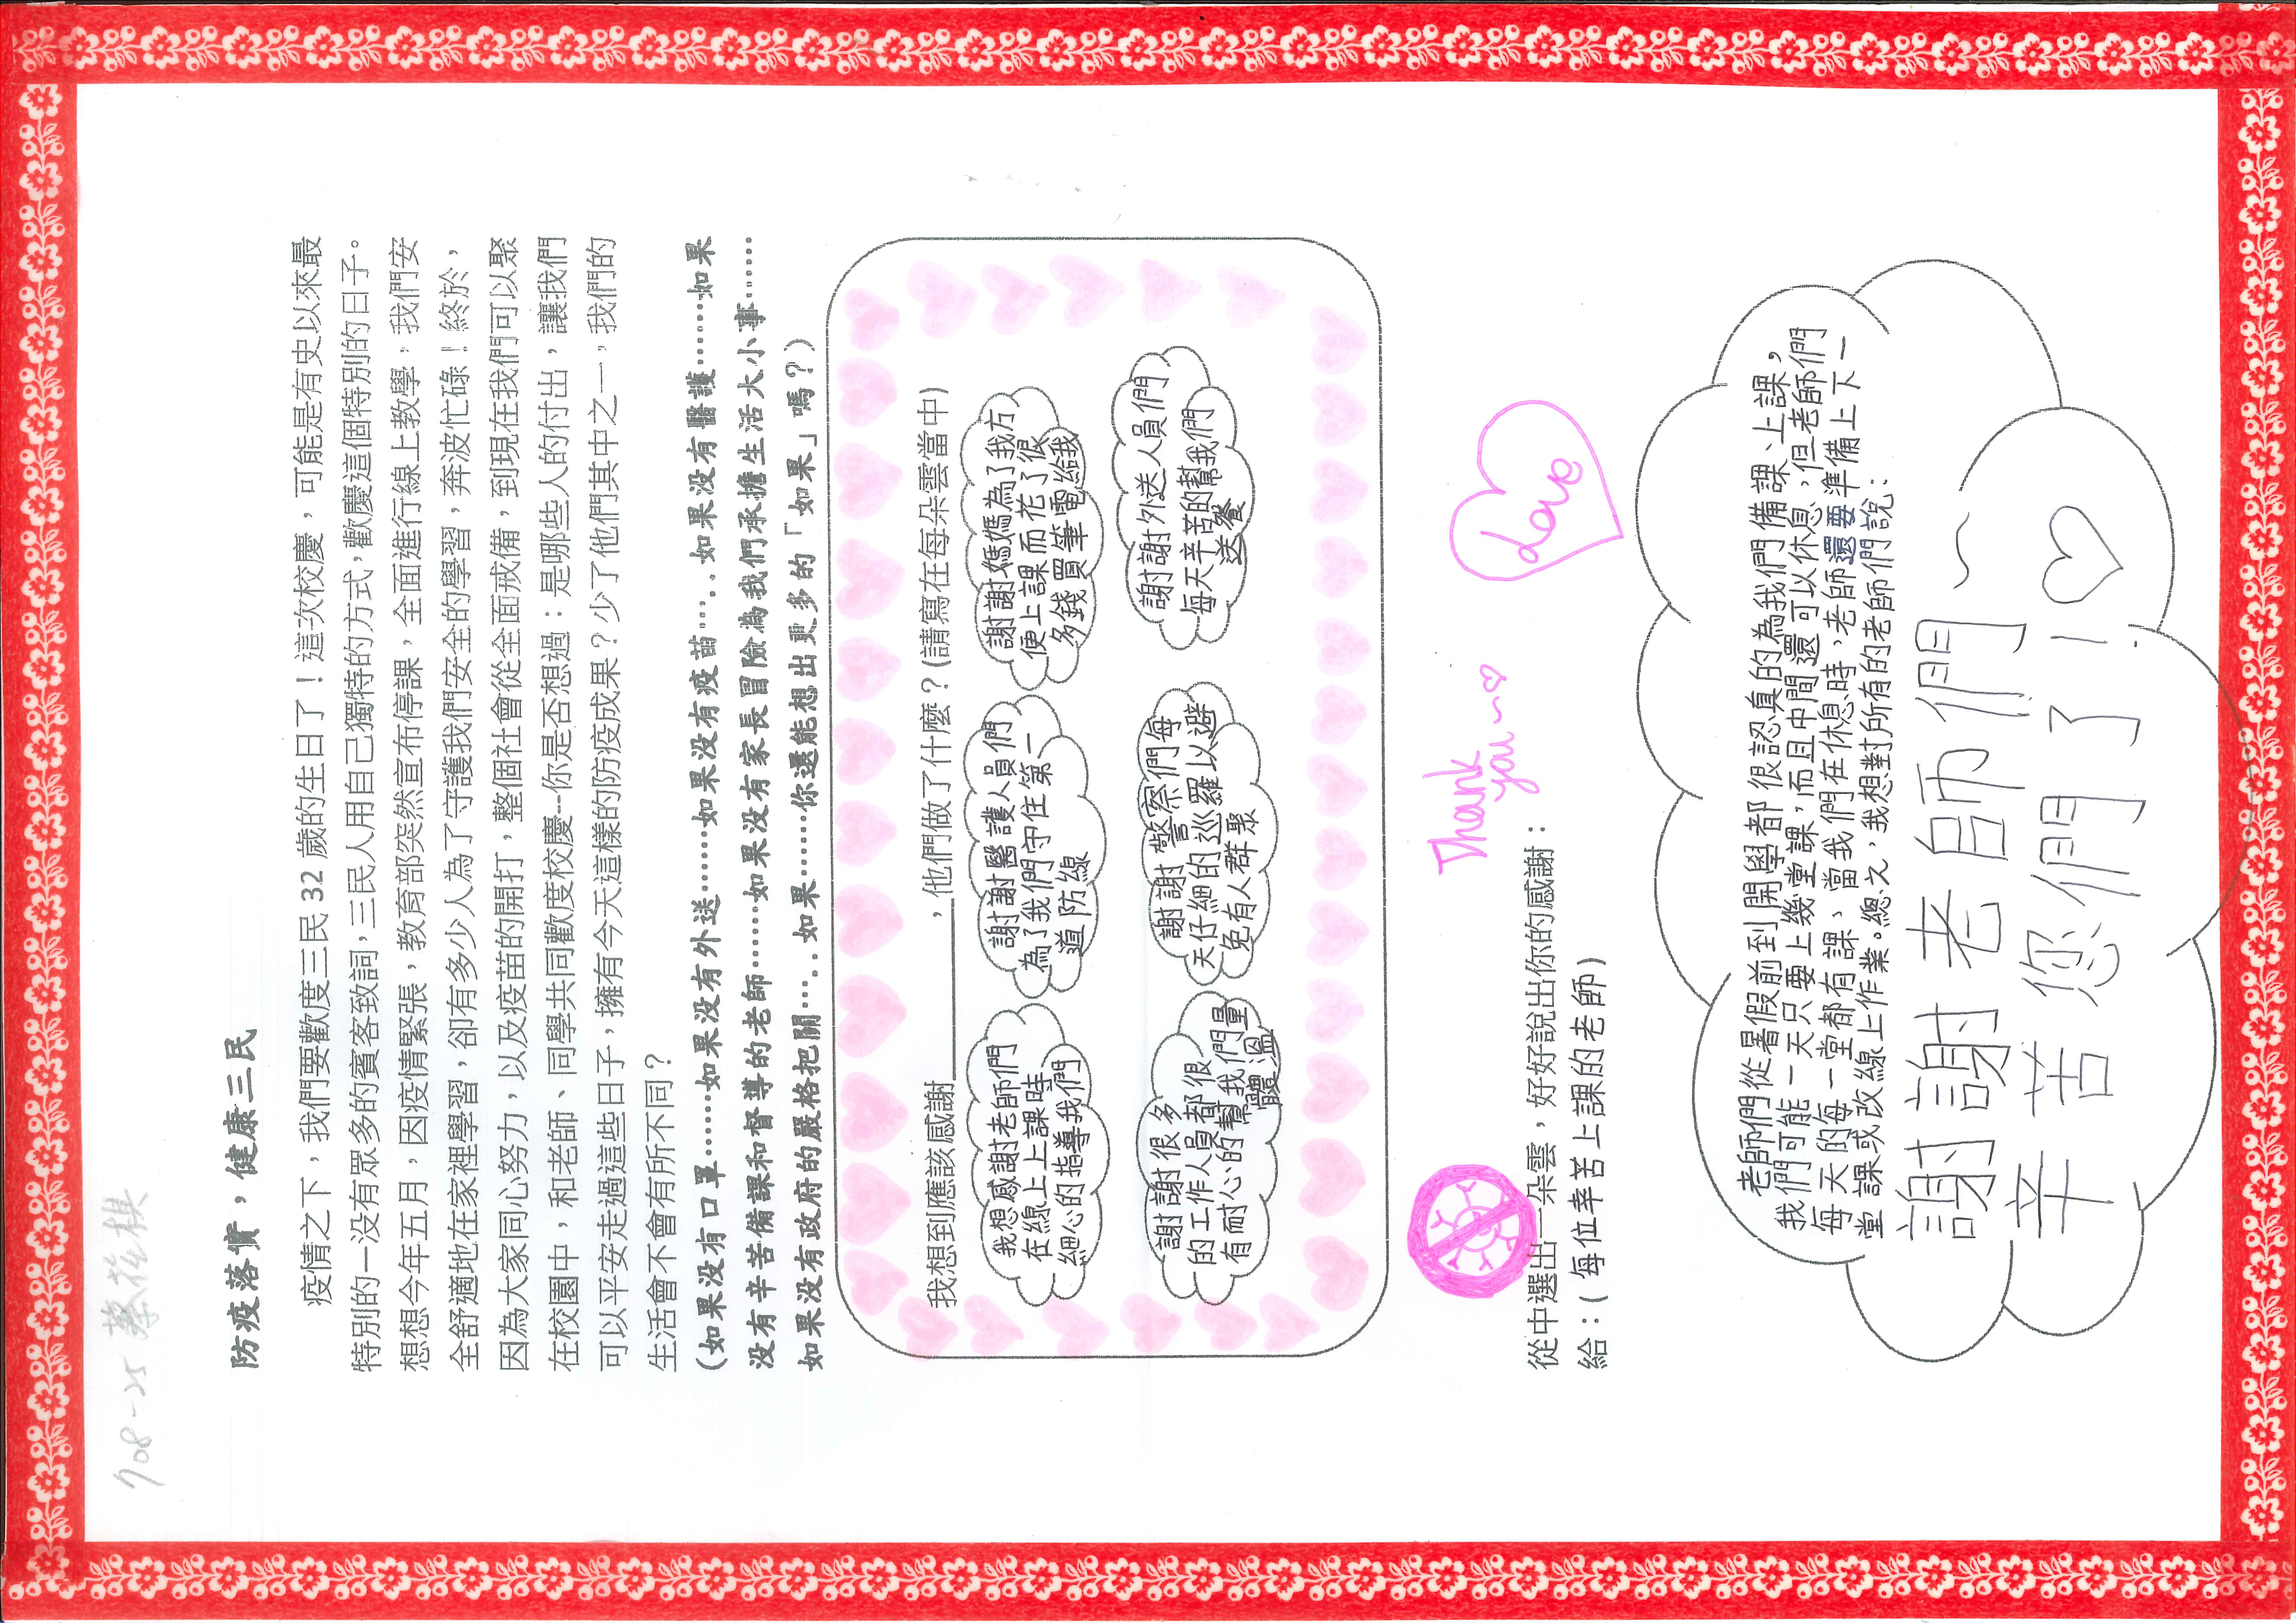 708-25 蔡
防疫落實，健康三民
疫情之下，我們要歡度三民 32 歲的生日了！這次校慶，可能是有史以來最
特別的一没有眾多的賓客致詞，三民人用自己獨特的方式，歡慶這個特別的日子。
想想今年五月，因疫情緊張，教育部突然宣布停課，全面進行線上教學，我們安
全舒適地在家裡學習，卻有多少人為了守護我們安全的學習，奔波忙碌！終於，
因為大家同心努力，以及疫苗的開打，整個社會從全面戒備，到現在我們可以聚
在校園中，和老師、同學共同歡度校慶--你是否想過：是哪些人的付出，讓我們
可以平安走過這些日子，擁有今天這樣的防疫成果？少了他們其中之一，我們的
生活會不會有所不同？
(如果没有口罩……如果没有外送……如果没有疫苗…..如果没有醫護……如果
没有辛苦備課和督導的老師……如果没有家長冒險為我們承擔生活大小事……
如果没有政府的嚴格把關…..如果……你還能想出更多的「如果」嗎？)
我想到應該感謝＿＿＿＿＿＿，他們做了什麼？(請寫在每朵雲當中)
我想感謝老師們
在線上上課時
細心的指導我們
謝謝醫護人員們
為了我們守住第一
道防線
謝謝媽媽為了我方
便上課而花了很
多錢買筆電給我
謝謝很多
的工作人員都很
有耐心的幫我們量
體溫
謝謝警察們每
天仔細的巡羅以避
免有人群聚
謝謝外送人員們
每天辛苦的幫我們
送餐
Thank
you~♡
Love
從中選出一朵雲，好好說出你的感謝：
給：(每位辛苦上課的老師)
老師們從暑假前到開學都很認真的為我們備課、上課，
我們可能一天只要上幾堂課，而且中間還可以休息，但老師們
每天的每一堂都有課、當我們在休息時，老師還要準備上下一
堂課或改線上作業。總之，我想對所有的老師們說：
謝謝老師們~
辛苦您們了！♡